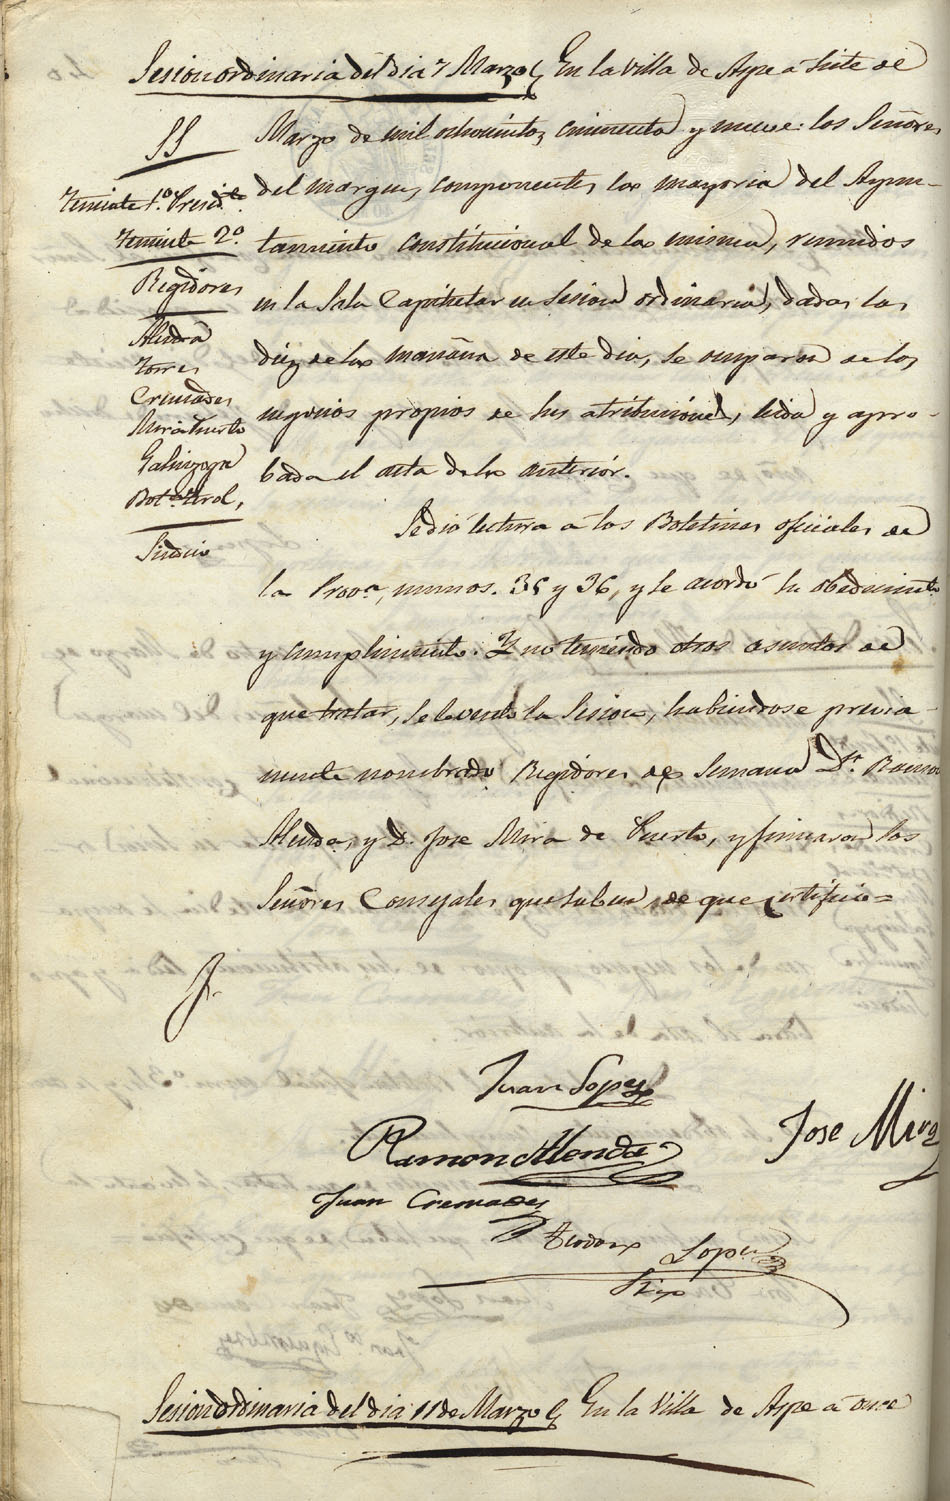 Sesion ordinaria del dia 7 Marzo En la Villa de Aspe a siete de
SS
Teniente 1.º Presid.te
Teniente 2º
Regidores
Alenda
Torres
Cremades
Mira Puerto
Galinzoga
Bot.a Erol,
Sindico
Marzo de mil ochocientos cincuenta y nueve: los Señores
del margen, componentes la mayoria del Ayun-
tamiento constitucional de la misma, reunidos
en la Sala Capitular en sesion ordinaria, dadas las
diez de la mañana de este dia, se ocuparon de los
negocios propios de sus atribuciones, leida y apro-
bada el acta de la anterior.
Se dió lectura a los Boletines oficiales de
la Prov.a, numos. 35 y 36, y se acordó su obedecimiento
y cumplimiento. Y no teniendo otros asuntos de
que tratar, se levantó la Sesion, habiendose previa-
mente nombrado Regidores de Semana D.n Ramon
Alenda, y D. Jose Mira de Puerto, y firmaron los
Señores Concejales que saben, de que certifico=
Juan Lopez
Jose Mira
Ramon Alenda
Juan Cremades
Teodoro Lopez
Srio
Sesion ordinaria del dia 11 de Marzo En la Villa de Aspe a once